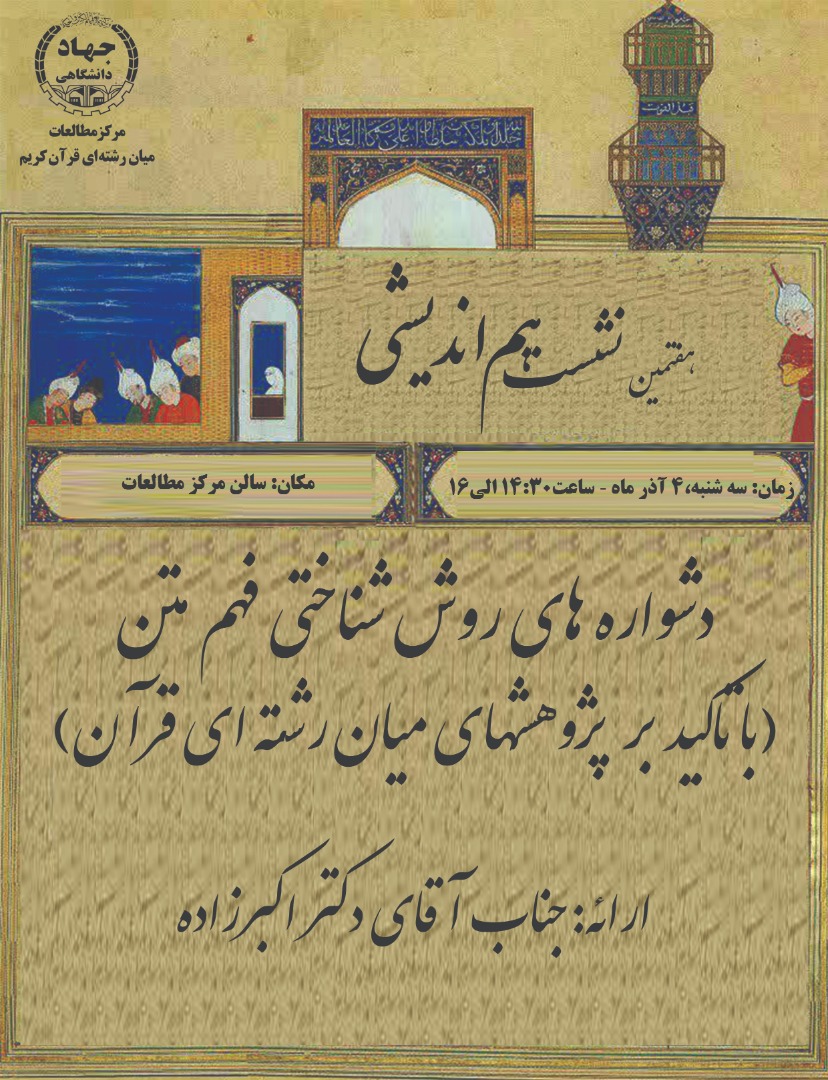 جهاد
دانشگاهی
مرکز مطالعات
میان رشته‌ای قرآن کریم
هفتمین نشست هم اندیشی
زمان: سه شنبه، ۴ آذر ماه - ساعت ۱۴:۳۰ الی ۱۶
مکان: سالن مرکز مطالعات
دشواره های روش شناختی فهم متن
(با تاکید بر پژوهشهای میان رشته ای قرآن)
ارائه: جناب آقای دکتر اکبرزاده